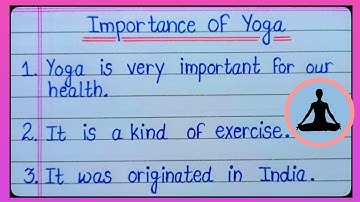 Importance of Yoga
1. Yoga is very important for our
health.
2. It is a kind of exercise.
3. It was originated in India.